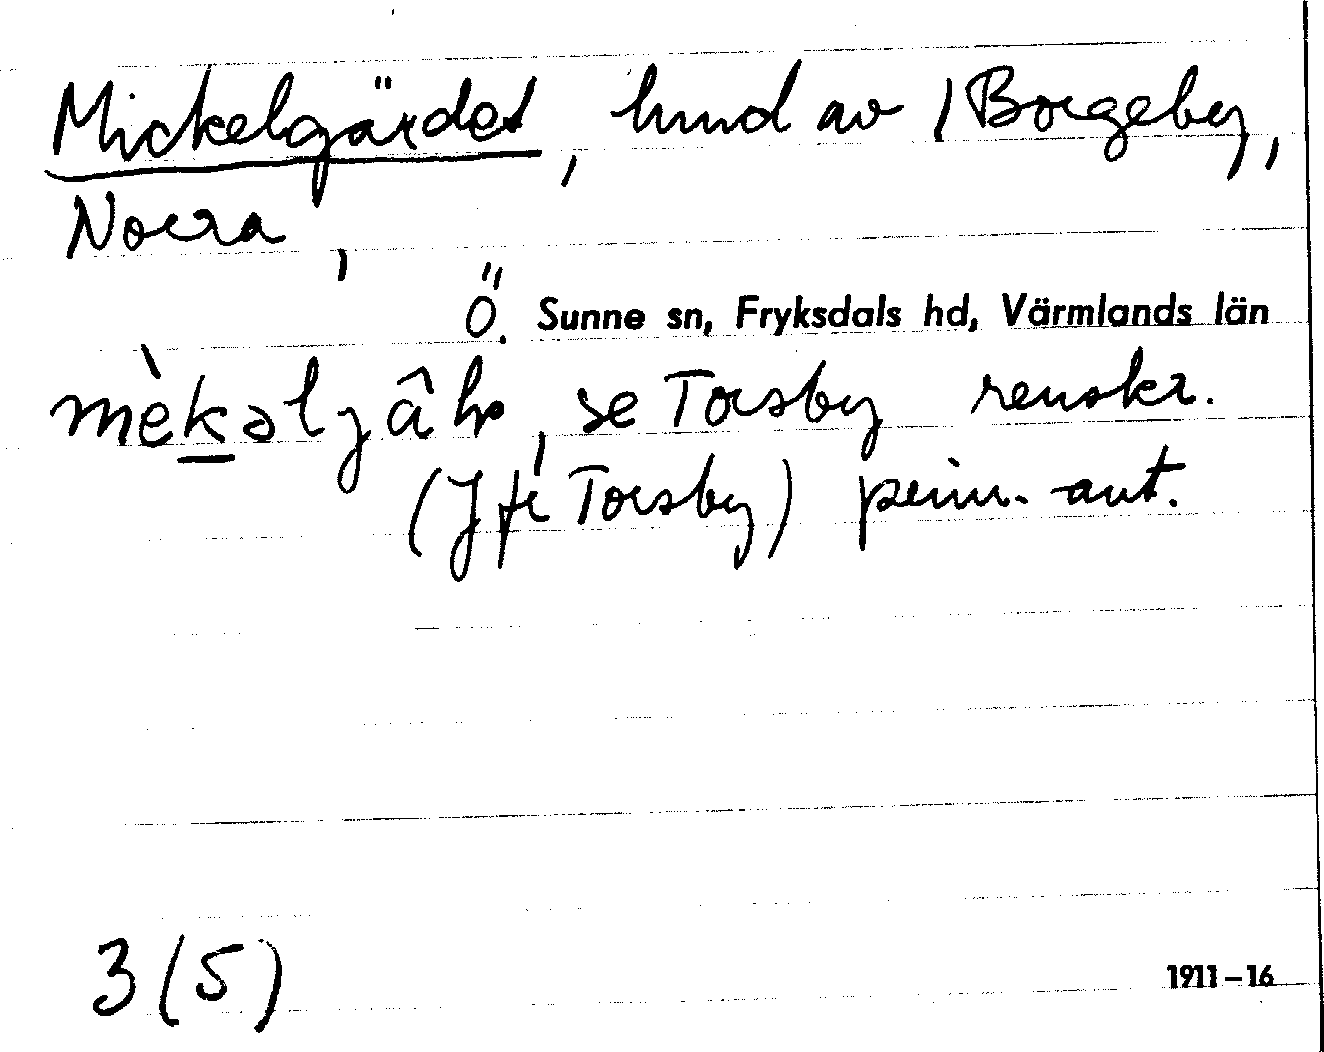 Mickelgärdet, hmd av 1 Borgeby,
Norra,
Ö. Sunne sn, Fryksdals hd, Värmlands län
se Torsby renskr.
(J fr Torsby) ant.
3 (5)
1911–16